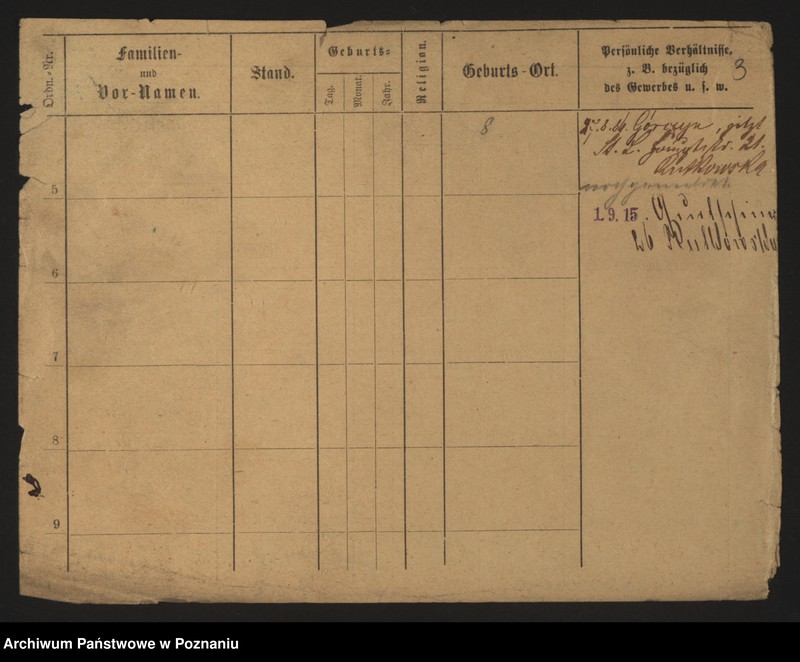 Ordn.-Nr.
Familien-
und
Vor-Namen.
Stand.
Geburts-
Tag.
Monat.
Jahr.
Religion.
Geburts-Ort.
Persönliche Verhältnisse,
z. B. bezüglich
des Gewerbes u. s. w.
3
8
Gorczyn, jetzt
St. L. Hauptstr. 21.
Rutkowska
noch gemeldet
5
1.9.15.
26 Rutkowska
6
7
8
9
Archiwum Państwowe w Poznaniu